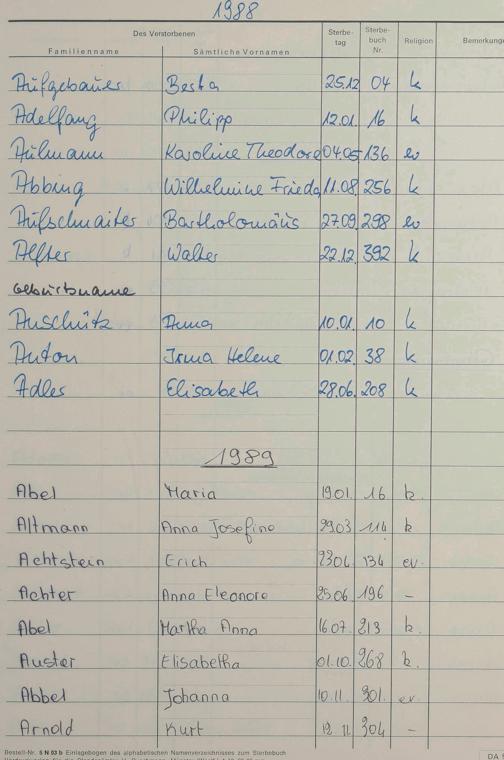 1988
Des Verstorbenen Sterbe- Sterbe-
Familienname Sämtliche Vornamen tag buch Nr. Religion Bemerkung
Aufgebauer Berta 25.12 04 k
Adelfang Philipp 12.01. 16 k
Aulmann Karoline Theodora 04.05 136 ev
Abbing Wilhelmine Frieda 11.08. 256 k
Aufschnaiter Bartholomäus 27.09. 298 ev
Alfter Walter 22.12. 392 k
Geburtsname
Auschütz Anna 10.01. 10 k
Anton Irma Helene 01.02. 38 k
Adler Elisabeth 28.06. 208 k
1989
Abel Maria 19.01. 16 k.
Altmann Anna Josefine 29.03 114 k
Achtstein Erich 23.04. 134 ev.
Achter Anna Eleonore 25.06 196 –
Abel Martha Anna 16.07. 213 k.
Auster Elisabetha 01.10. 268 k.
Abbel Johanna 10.11. 301. ev.
Arnold Kurt 12.11. 304 –
Bestell-Nr. 5 N 03 b Einlagebogen des alphabetischen Namenverzeichnisses zum Sterbebuch
DA